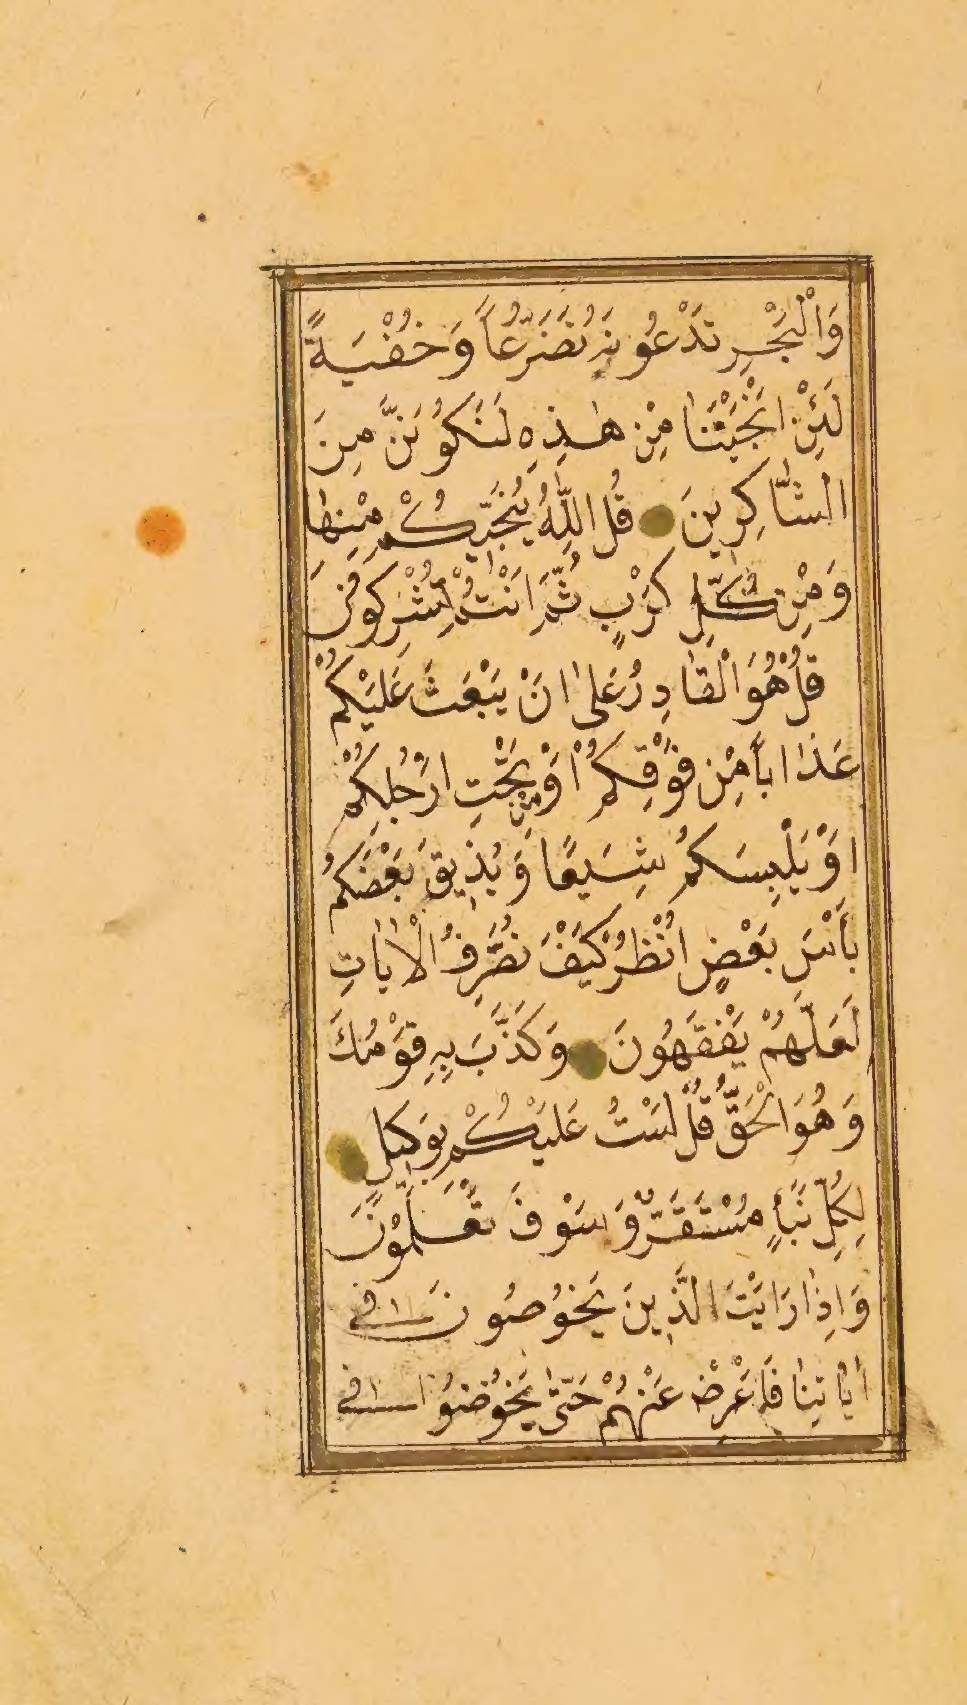 وَالْبَحْرِ تَدْعُونَهُ تَضَرُّعاً وَخُفْيَةً
لَئِنْ اَنْجَيْتَنَا مِنْ هٰذِهِ لَنَكُونَنَّ مِنَ
الشَّاكِرِينَ قُلِ اللّٰهُ يُنَجِّيكُمْ مِنْهَا
وَمِنْ كُلِّ كَرْبٍ ثُمَّ اَنْتُمْ تُشْرِكُونَ
قُلْ هُوَ الْقَادِرُ عَلٰى اَنْ يَبْعَثَ عَلَيْكُمْ
عَذَاباً مِنْ فَوْقِكُمْ اَوْ مِنْ تَحْتِ اَرْجُلِكُمْ
اَوْ يَلْبِسَكُمْ شِيَعًا وَيُذِيقَ بَعْضَكُمْ
بَأْسَ بَعْضٍ اُنْظُرْ كَيْفَ نُصَرِّفُ الْاٰيَاتِ
لَعَلَّهُمْ يَفْقَهُونَ وَكَذَّبَ بِهِ قَوْمُكَ
وَهُوَ الْحَقُّ قُلْ لَسْتُ عَلَيْكُمْ بِوَكِيلٍ
لِكُلِّ نَبَأٍ مُسْتَقَرٌّ وَسَوْفَ تَعْلَمُونَ
وَاِذَا رَاَيْتَ الَّذِينَ يَخُوضُونَ فِى
اٰيَاتِنَا فَاَعْرِضْ عَنْهُمْ حَتّٰى يَخُوضُوا فِى